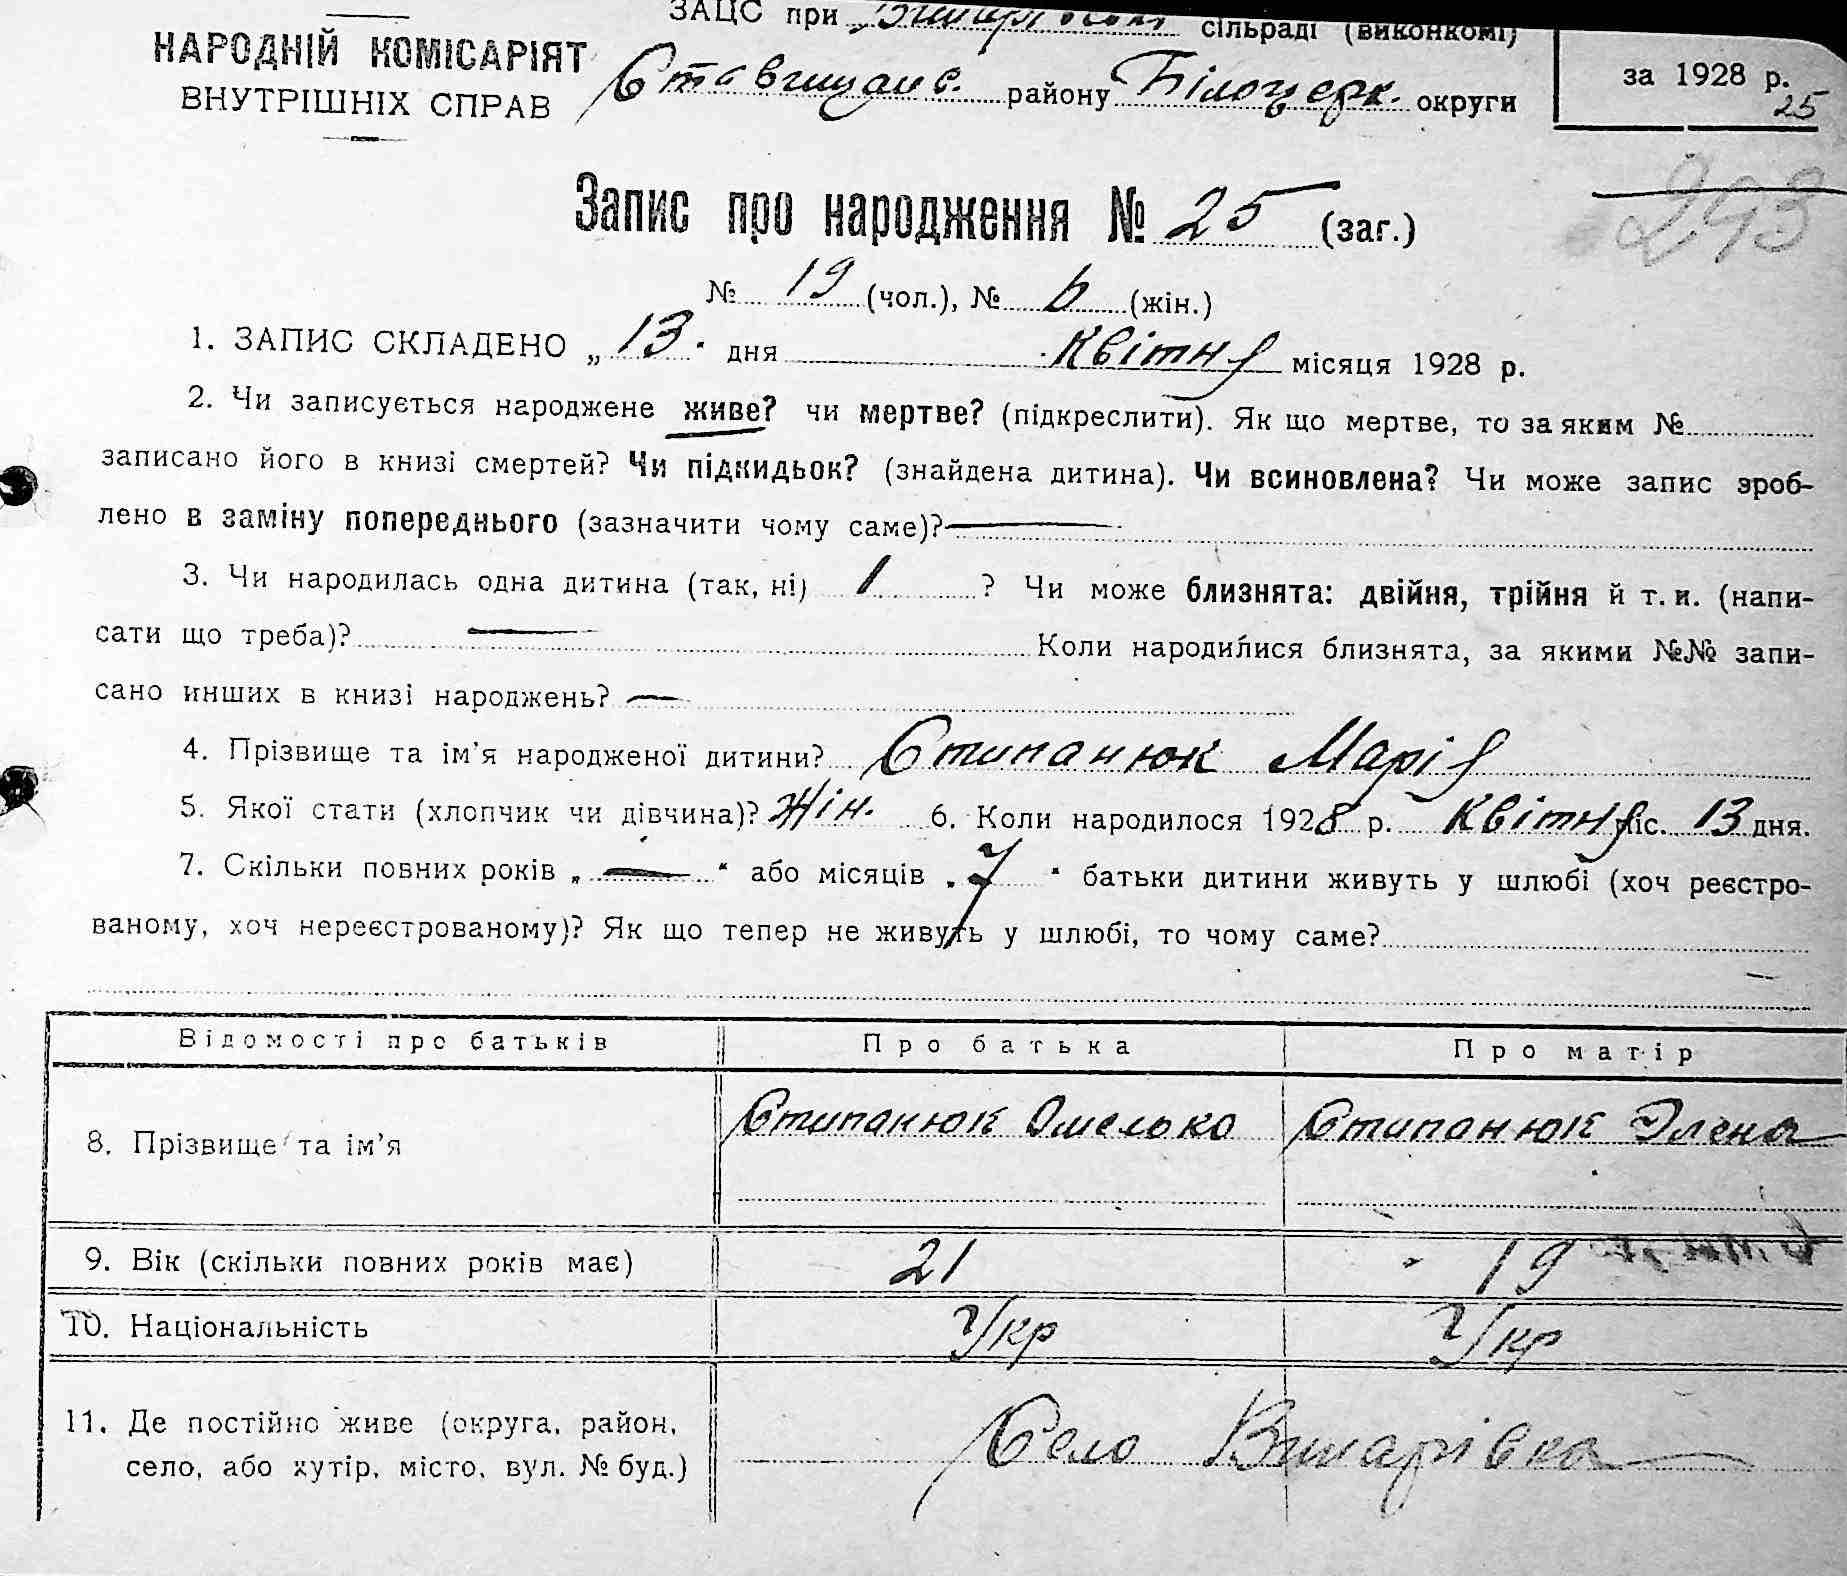 ЗАЦС при Винарівській сільраді (виконкомі)
НАРОДНІЙ КОМІСАРІЯТ
ВНУТРІШНІХ СПРАВ
Ставищанс. району Білоцерк. округи
за 1928 р.
25
Запис про народження № 25 (заг.)
243
№ 19 (чол.), № 6 (жін.)
1. ЗАПИС СКЛАДЕНО „13" дня Квітня місяця 1928 р.
2. Чи записується народжене живе? чи мертве? (підкреслити). Як що мертве, то за яким №
записано його в книзі смертей? Чи підкидьок? (знайдена дитина). Чи всиновлена? Чи може запис зроб-
лено в заміну попереднього (зазначити чому саме)? —
3. Чи народилась одна дитина (так, ні) 1 ? Чи може близнята: двійня, трійня й т. и. (напи-
сати що треба)? — Коли народилися близнята, за якими №№ запи-
сано инших в книзі народжень? —
4. Прізвище та ім'я народженої дитини? Стипанюк Марія
5. Якої стати (хлопчик чи дівчина)? Жін. 6. Коли народилося 1928 р. Квітня міс. 13 дня.
7. Скільки повних років „ — " або місяців „ 7 " батьки дитини живуть у шлюбі (хоч реєстро-
ваному, хоч нереєстрованому)? Як що тепер не живуть у шлюбі, то чому саме?
—
Відомості про батьків Про батька Про матір
8. Прізвище та ім'я Стипанюк Омелько Стипанюк Олена
9. Вік (скільки повних років має) 21 19
10. Національність Укр Укр
11. Де постійно живе (округа, район,
село, або хутір, місто, вул. № буд.) Село Винарівка